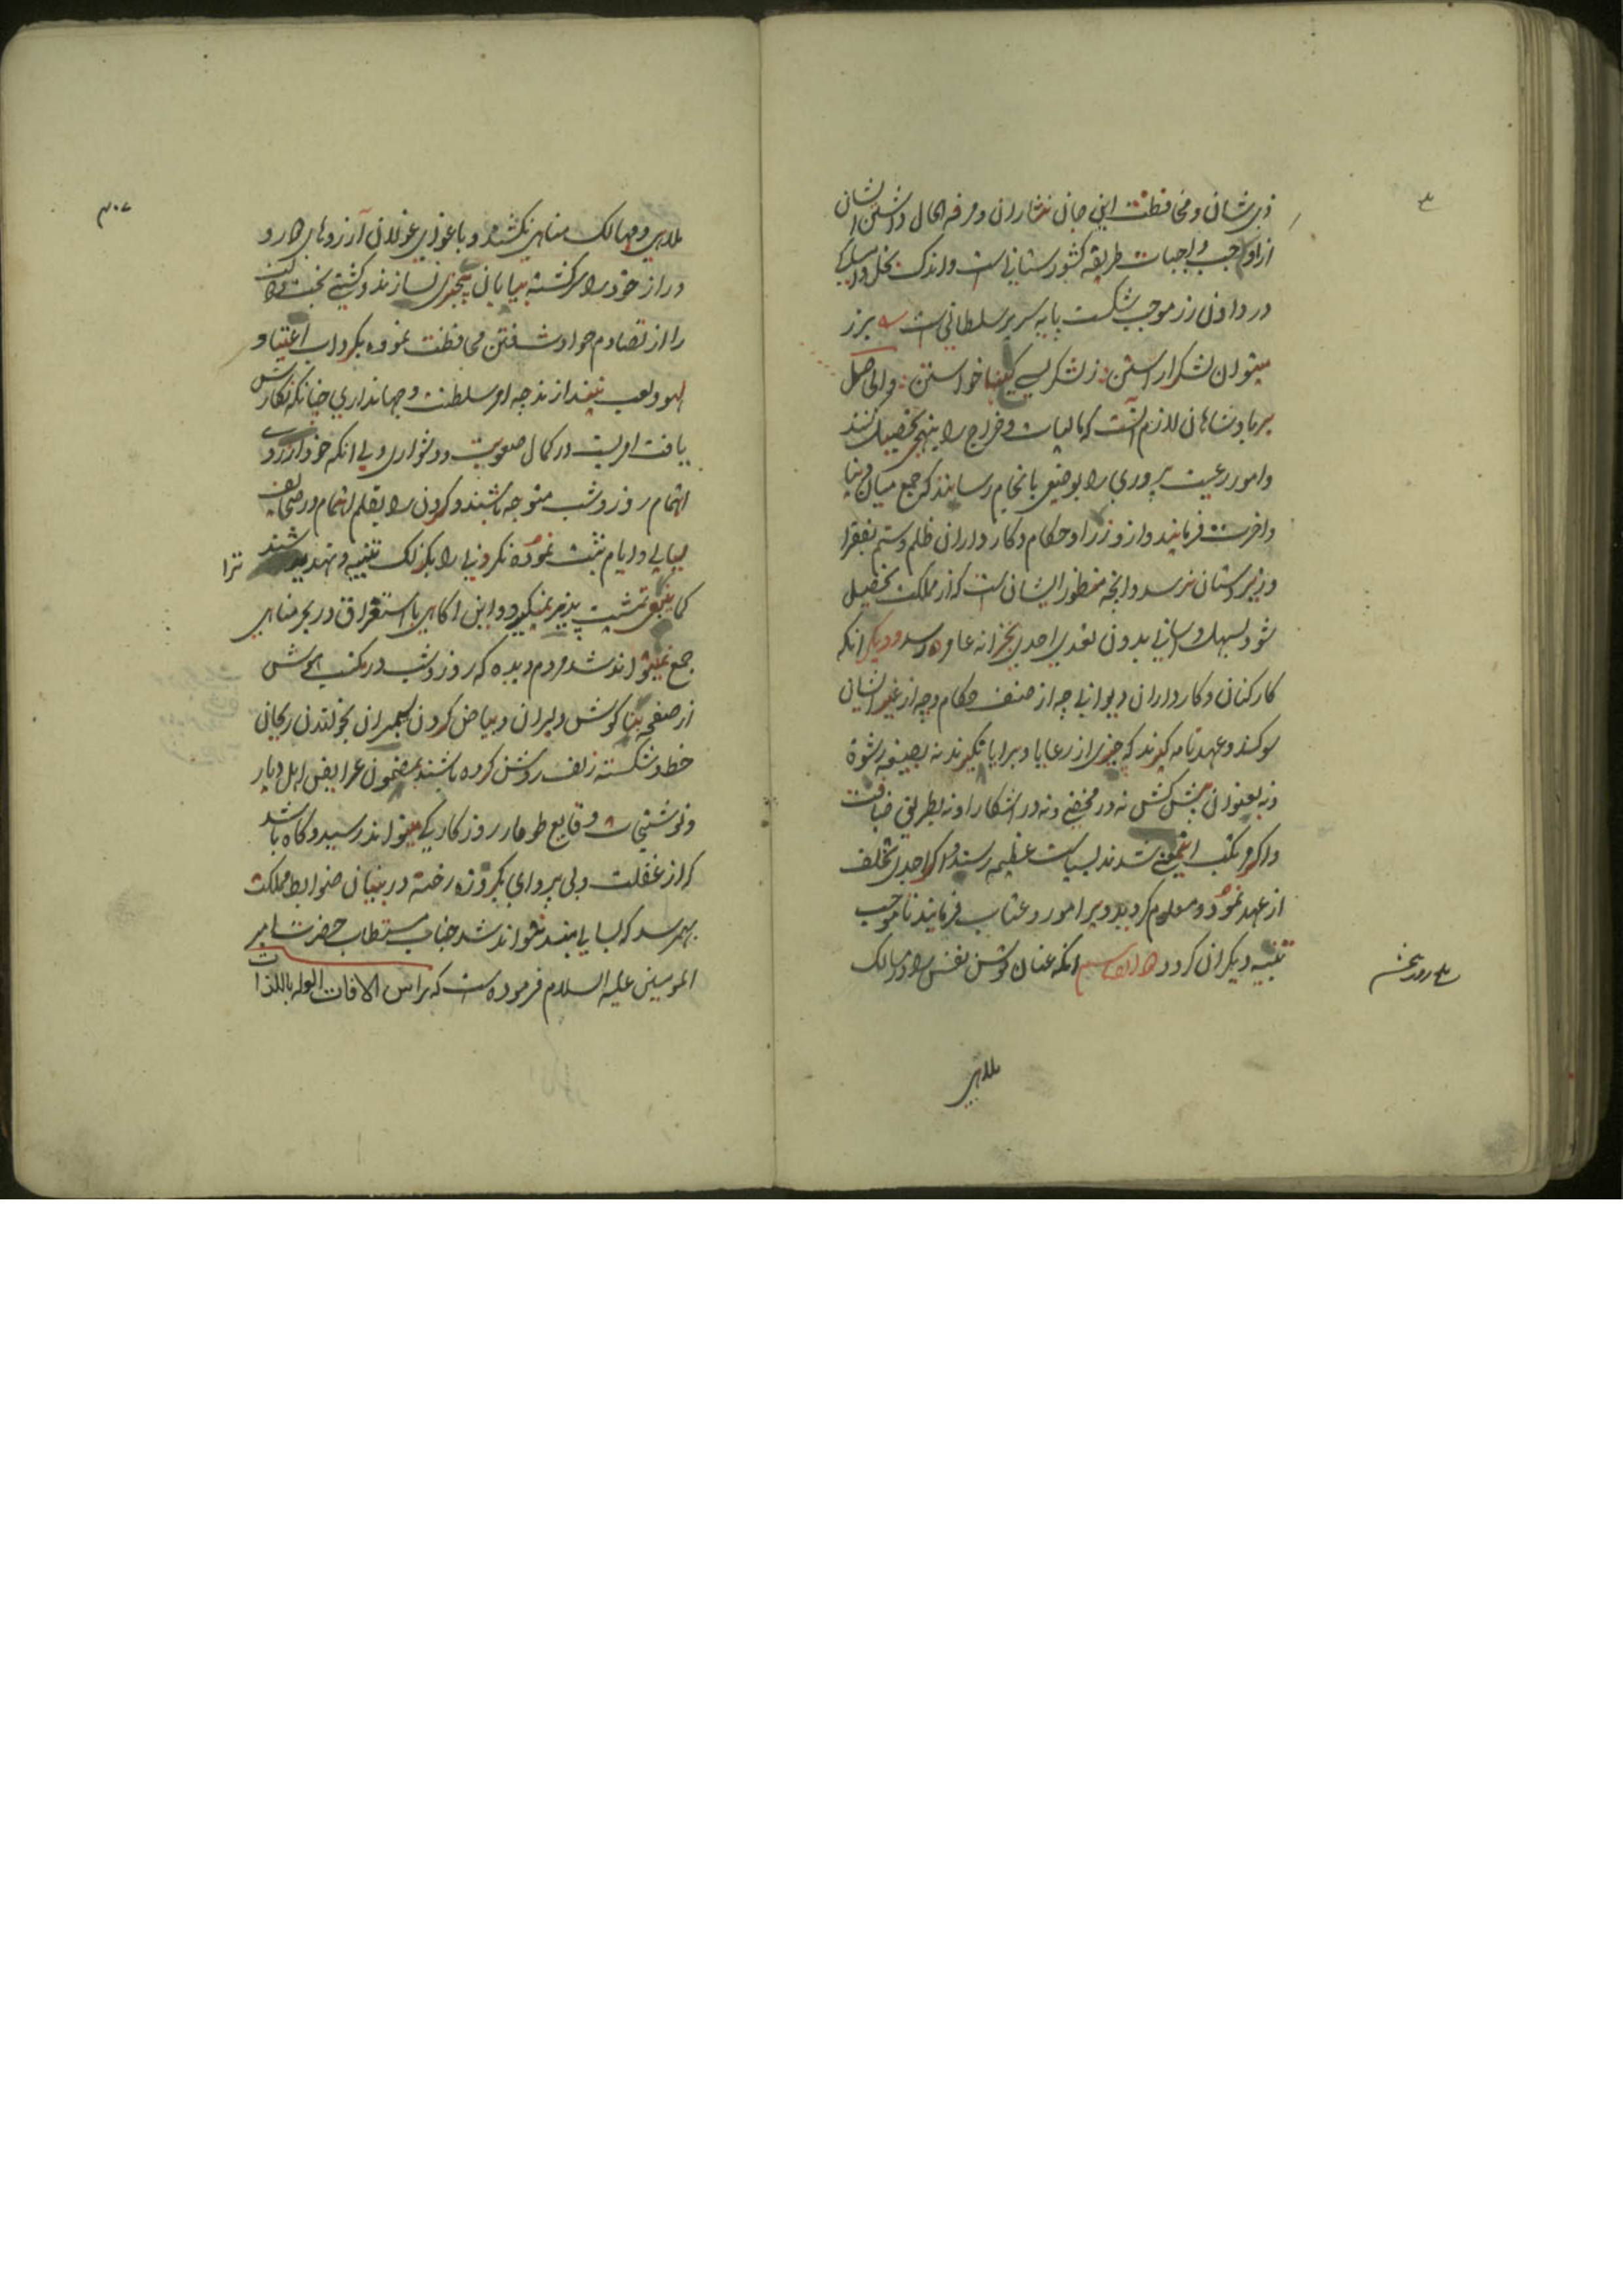 ذی شان و محافظت این جان نثاران و مرفه الحال داشتن ایشان
از اوجب واجبات طریقه کشورستانی است و اندک بخل و امساک
در دادن زر موجب شکست پایه سریر سلطانی است بزر
میتوان لشکر آراستن ز لشکر کینها خواستن
بر پادشاهان لازم انست که مالیات و خراج را بنهجی تحصیل کنند
و امور رعیت پروری را بوضعی بانجام رسانند که جمع میان دنیا
و اخرت فرمایند و از وزرا و حکام و کارداران ظلم و ستم بفقرا
و زیردستان نرسد و انچه منظور ایشان است که از مملکت تحصیل
شود بسهل و اسانی بدون تعدی احدی بخزانه عامره رسد و دیگر انکه
کارکنان و کارداران دیوانی چه از صنف حکام و چه از غیر ایشان
سوکند و عهدنامه گیرند که چیزی از رعایا و برایا نگیرند نه بصیغه رشوة
و نه بعنوان پیش کش نه در مخفی و نه در اشکارا و نه بطریق ضیافت
و اگر مرتکب اینمعنی شدند بسیاست عظیم رسند و اگر احدی تخلف
از عهد نموده و معلوم کردید ویرا مورد عتاب فرمایند تا موجب
تنبیه دیکران کردد انکه عنان توسن نفس را در مسالک
ملاهی
ملاهی و مهالک مناهی نکشند و باغوای غولان آرزوهای دور و
دراز خود را سرگشته بیابان بیخبری نسازند و کشتی بخت
را از تصادم حوادث فتن محافظت نموده بگرداب اعتیاد
لهو و لعب نیندازند چه امر سلطنت و جهانداری چنانکه نگارش
یافت امریست در کمال صعوبت و دشواری و بی انکه خود از روی
اهتمام روز و شب متوجه باشند و کردنی را بقلم اهتمام در صحایف
لیالی و ایام ثبت نموده نکردنی را بکزلک تنبیه و تهدید تراشند
کما ینبغی تمشیت پذیر نمیکردد و این اکاهی با استغراق در بحر مناهی
جمع نمیتواند شد مردم دیده که روز و شب در مکتب هوش
از صفحه بناکوش دلبران و بیاض کردن سیمبران بخواندن ریحان
خط و شکسته زلف روشن کرده باشند بمضمون عرایض اهل دیار
و نوشتجات وقایع طومار روزکار کی میتواند رسید و کاه باشد
که از غفلت و بی پروای یکروزه رخنه در بنیان ضوابط مملکت
بهمرسد که بسالی بند نتواند شد جناب مستطاب حضرت امیر
المومنین علیه السلام فرموده است که راس الافات الوله باللذات